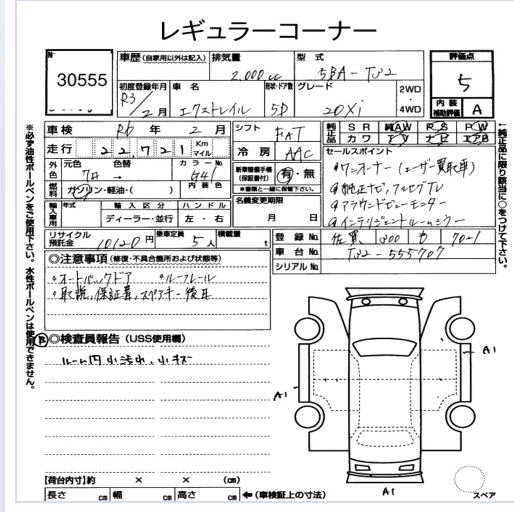 レギュラーコーナー
№ 30555
車歴(自家用以外は記入) 排気量 2,000 cc 型式 5BA-T32 評価点 5
初度登録年月 R3/2月 車名 エクストレイル 形状・ドア数 5D グレード 20Xi 2WD・4WD 内装補助評価 A
車検 R6年2月 シフト FAT 純正品 SR 純AW PS PW
カワ TV ナビ エアB
走行 22,721 Km マイル 冷房 AAC セールスポイント
外色 元色 色替 カラーNo. G41 新車整備手帳(保証書付) 有・無
※書類と一緒に保管下さい。
①ワンオーナー(ユーザー買取車)
燃料 ガソリン・軽油・( ) 内装色
②純正ナビ,フルセグTV
輸入車用 年式 輸入区分 ハンドル 名義変更期限
③アラウンドビューモニター
ディーラー・並行 左・右 月 日
④インテリジェントルームミラー
リサイクル預託金 10120円 乗車定員 5人 積載量 t 登録No. 佐賀 300
車台No. T32-555707
シリアルNo.
◎注意事項(修復・不具合箇所および状態等)
・オートバックドア ・ルーフレール
・取説,保証書,スペアキー後日
B ◎検査員報告(USS使用欄)
ルーム内小汚れ、小キズ
A1
A1
A1
【荷台内寸】約 × × (cm)
長さ cm 幅 cm 高さ cm ←(車検証上の寸法)
スペア
※必ず油性ボールペンをご使用下さい。水性ボールペンは使用できません。
←純正品に限り該当に○をつけて下さい。